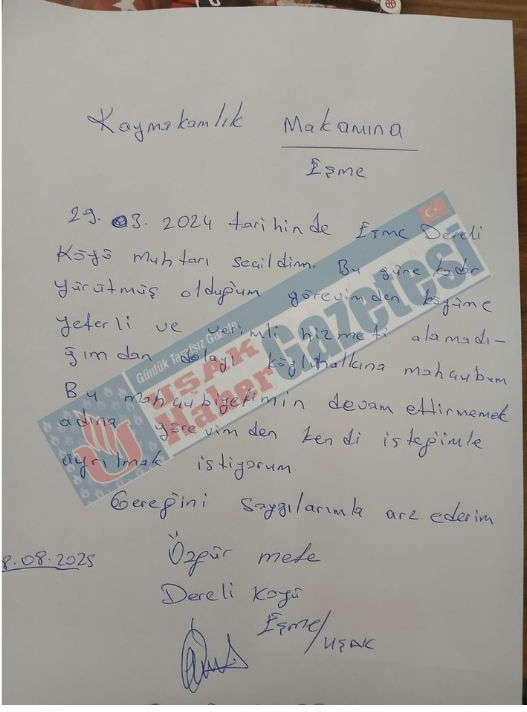 Kaymakamlık Makamına
Eşme
29.03.2024 tarihinde Eşme Dereli
Köyü muhtarı seçildim. Bu güne kadar
yürütmüş olduğum görevimden köyüme
yeterli ve verimli hizmeti alamadı-
ğımdan dolayı köylühalkına mahcubum
Bu mahcubiyetimin devam ettirmemek
adına görevimden kendi isteğimle
ayrılmak istiyorum
Gereğini Saygılarımla arz ederim
8.08.2025
Özgür mete
Dereli Köyü
Eşme/UŞAK
Günlük Tarafsız Gazete
UŞAK
Haber
Gazetesi